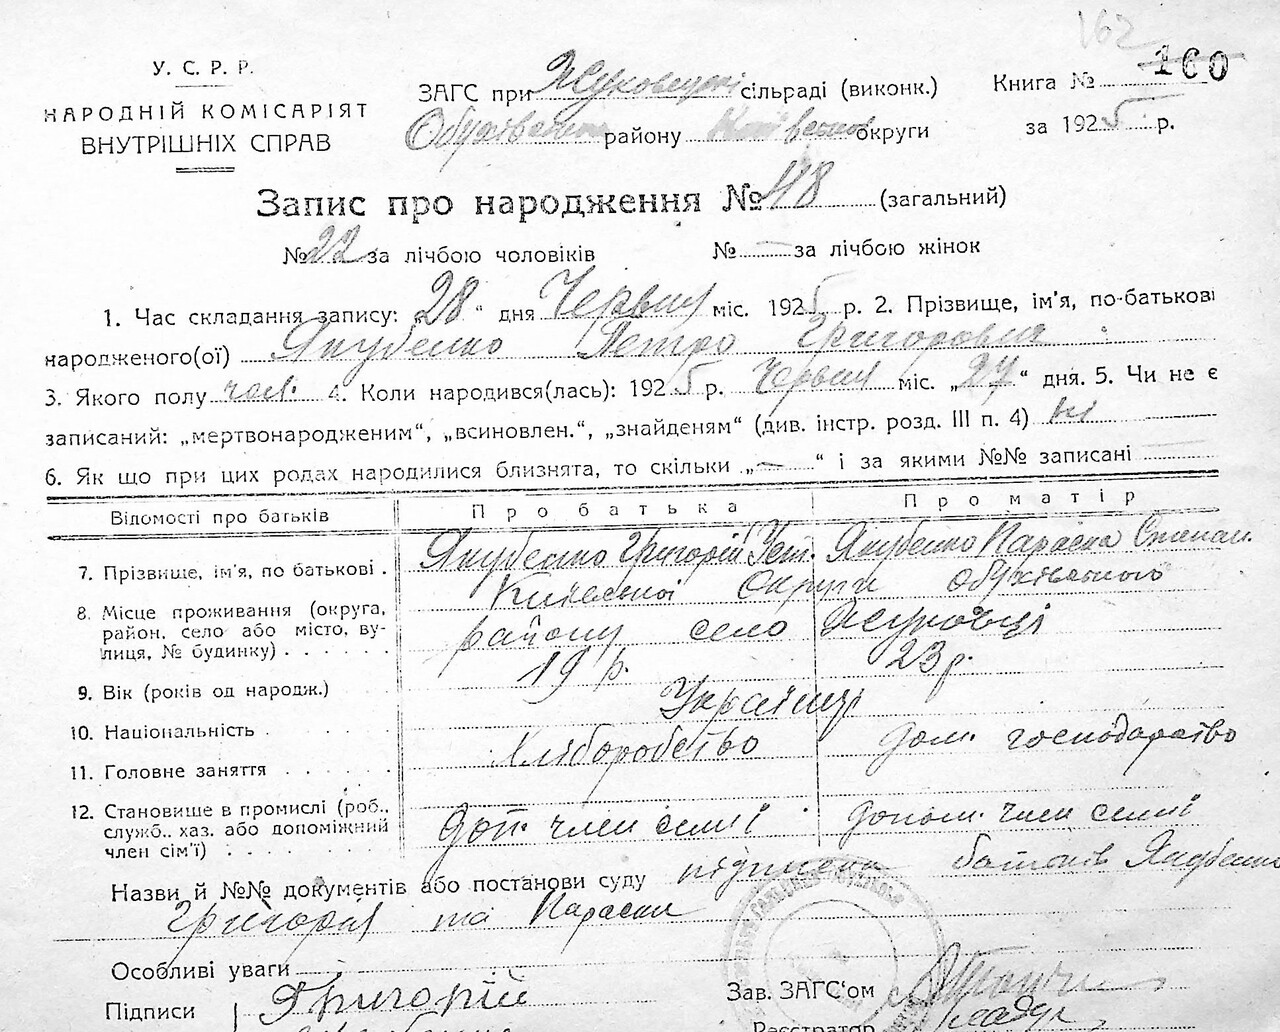 162
160
У. С. Р. Р.
НАРОДНІЙ КОМІСАРІЯТ
ВНУТРІШНІХ СПРАВ
ЗАГС при Жуковецькі сільраді (виконк.) Книга №
Обухівського району Київської округи за 1925 р.
Запис про народження № 118 (загальний)
№ 22 за лічбою чоловіків № — за лічбою жінок
1. Час складання запису: 28 " дня Червня міс. 1925 р. 2. Прізвище, ім'я, по-батькові
народженого(ої) Якубенко Петро Григорович
3. Якого полу чол. 4. Коли народився(лась): 1925 р. Червня міс. „27" дня. 5. Чи не є
записаний: „мертвонародженим", „всиновлен.", „знайденям" (див. інстр. розд. III п. 4) ні
6. Як що при цих родах народилися близнята, то скільки „—" і за якими №№ записані
Відомості про батьків Про батька Про матір
7. Прізвище, ім'я, по батькові . Якубенко Григорій Уст. Якубенко Параска Степан.
8. Місце проживання (округа, район, село або місто, ву-
лиця, № будинку) . . . . . . Київської Округи Обухівського
району село Жуковці
9. Вік (років од народж.) 19 р. 23 р.
10. Національність . . . . . . Українці
11. Головне заняття . . . . . . Хліборобство дом. господарство
12. Становище в промислі (роб.,
служб., хаз. або допоміжний
член сім'ї) . . . . . . . . . Доп. член семії допом. член семії
Назви й №№ документів або постанови суду підписка батьків Якубенко
Григорія та Параски
Особливі уваги
Підписи Григорій
Зав. ЗАГС'ом
Реєстратор